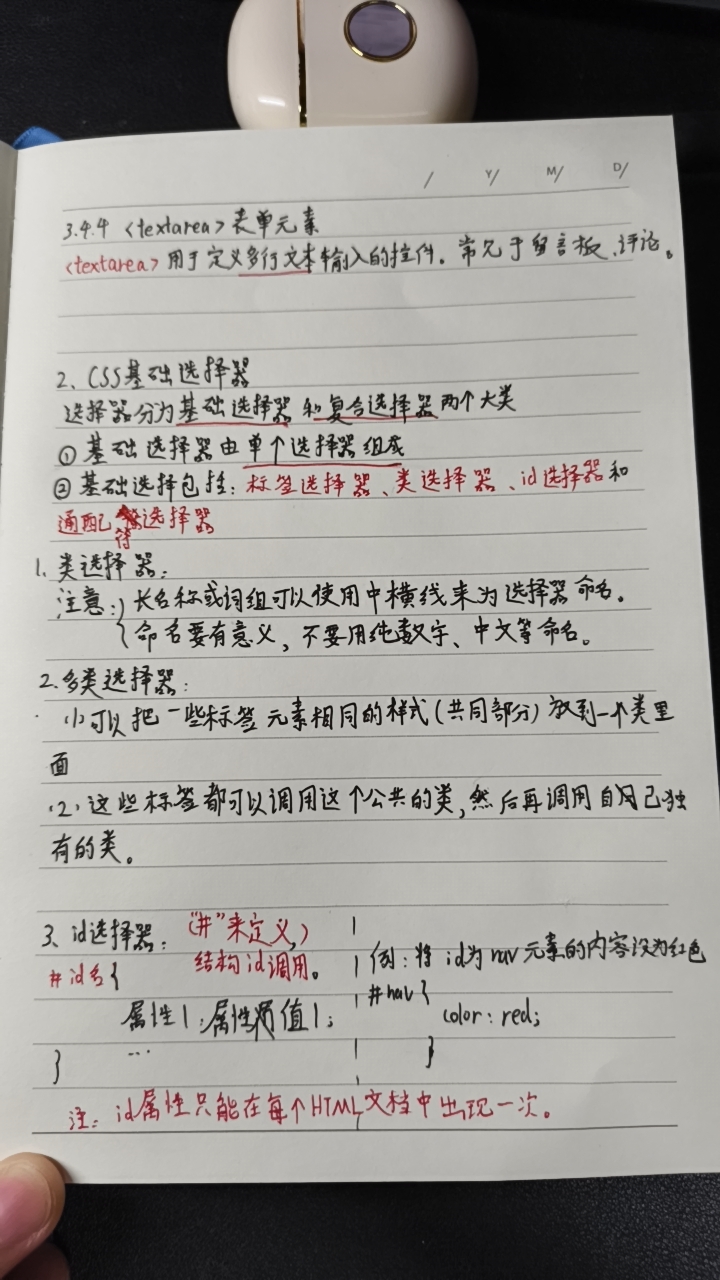 / Y/ M/ D/
3.4.4 <textarea>表单元素
<textarea>用于定义多行文本输入的控件。常见于留言板、评论。
2、CSS基础选择器
选择器分为基础选择器和复合选择器两个大类
① 基础选择器由单个选择器组成
② 基础选择包括：标签选择器、类选择器、id选择器和
通配符选择器
1. 类选择器：
注意：长名称或词组可以使用中横线来为选择器命名。
命名要有意义，不要用纯数字、中文等命名。
2.多类选择器：
(1)可以把一些标签元素相同的样式(共同部分)放到一个类里
面
(2)这些标签都可以调用这个公共的类，然后再调用自己独
有的类。
3、id选择器：("#"来定义，
结构id调用。)
#id名{
属性1:属性值1;
...
}
例：将id为nav元素的内容设为红色
#nav{
color: red;
}
注：id属性只能在每个HTML文档中出现一次。